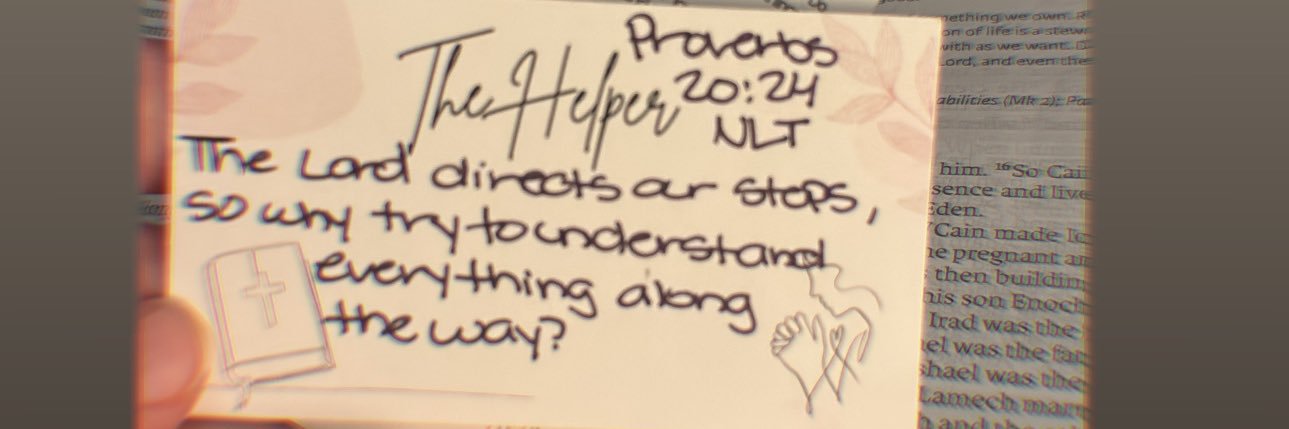 Proverbs
The Helper 20:24
NLT
The Lord directs our steps,
so why try to understand
everything along
the way?
ething we own.
on of life is a stew
with as we want.
Lord, and even the
abilities (Mk 2);
him. 16 So Cain
sence and live
Eden.
Cain made
e pregnant
then buildin
his son Enoch
Irad was the
el was the fat
shael was the
Lamech marr
and